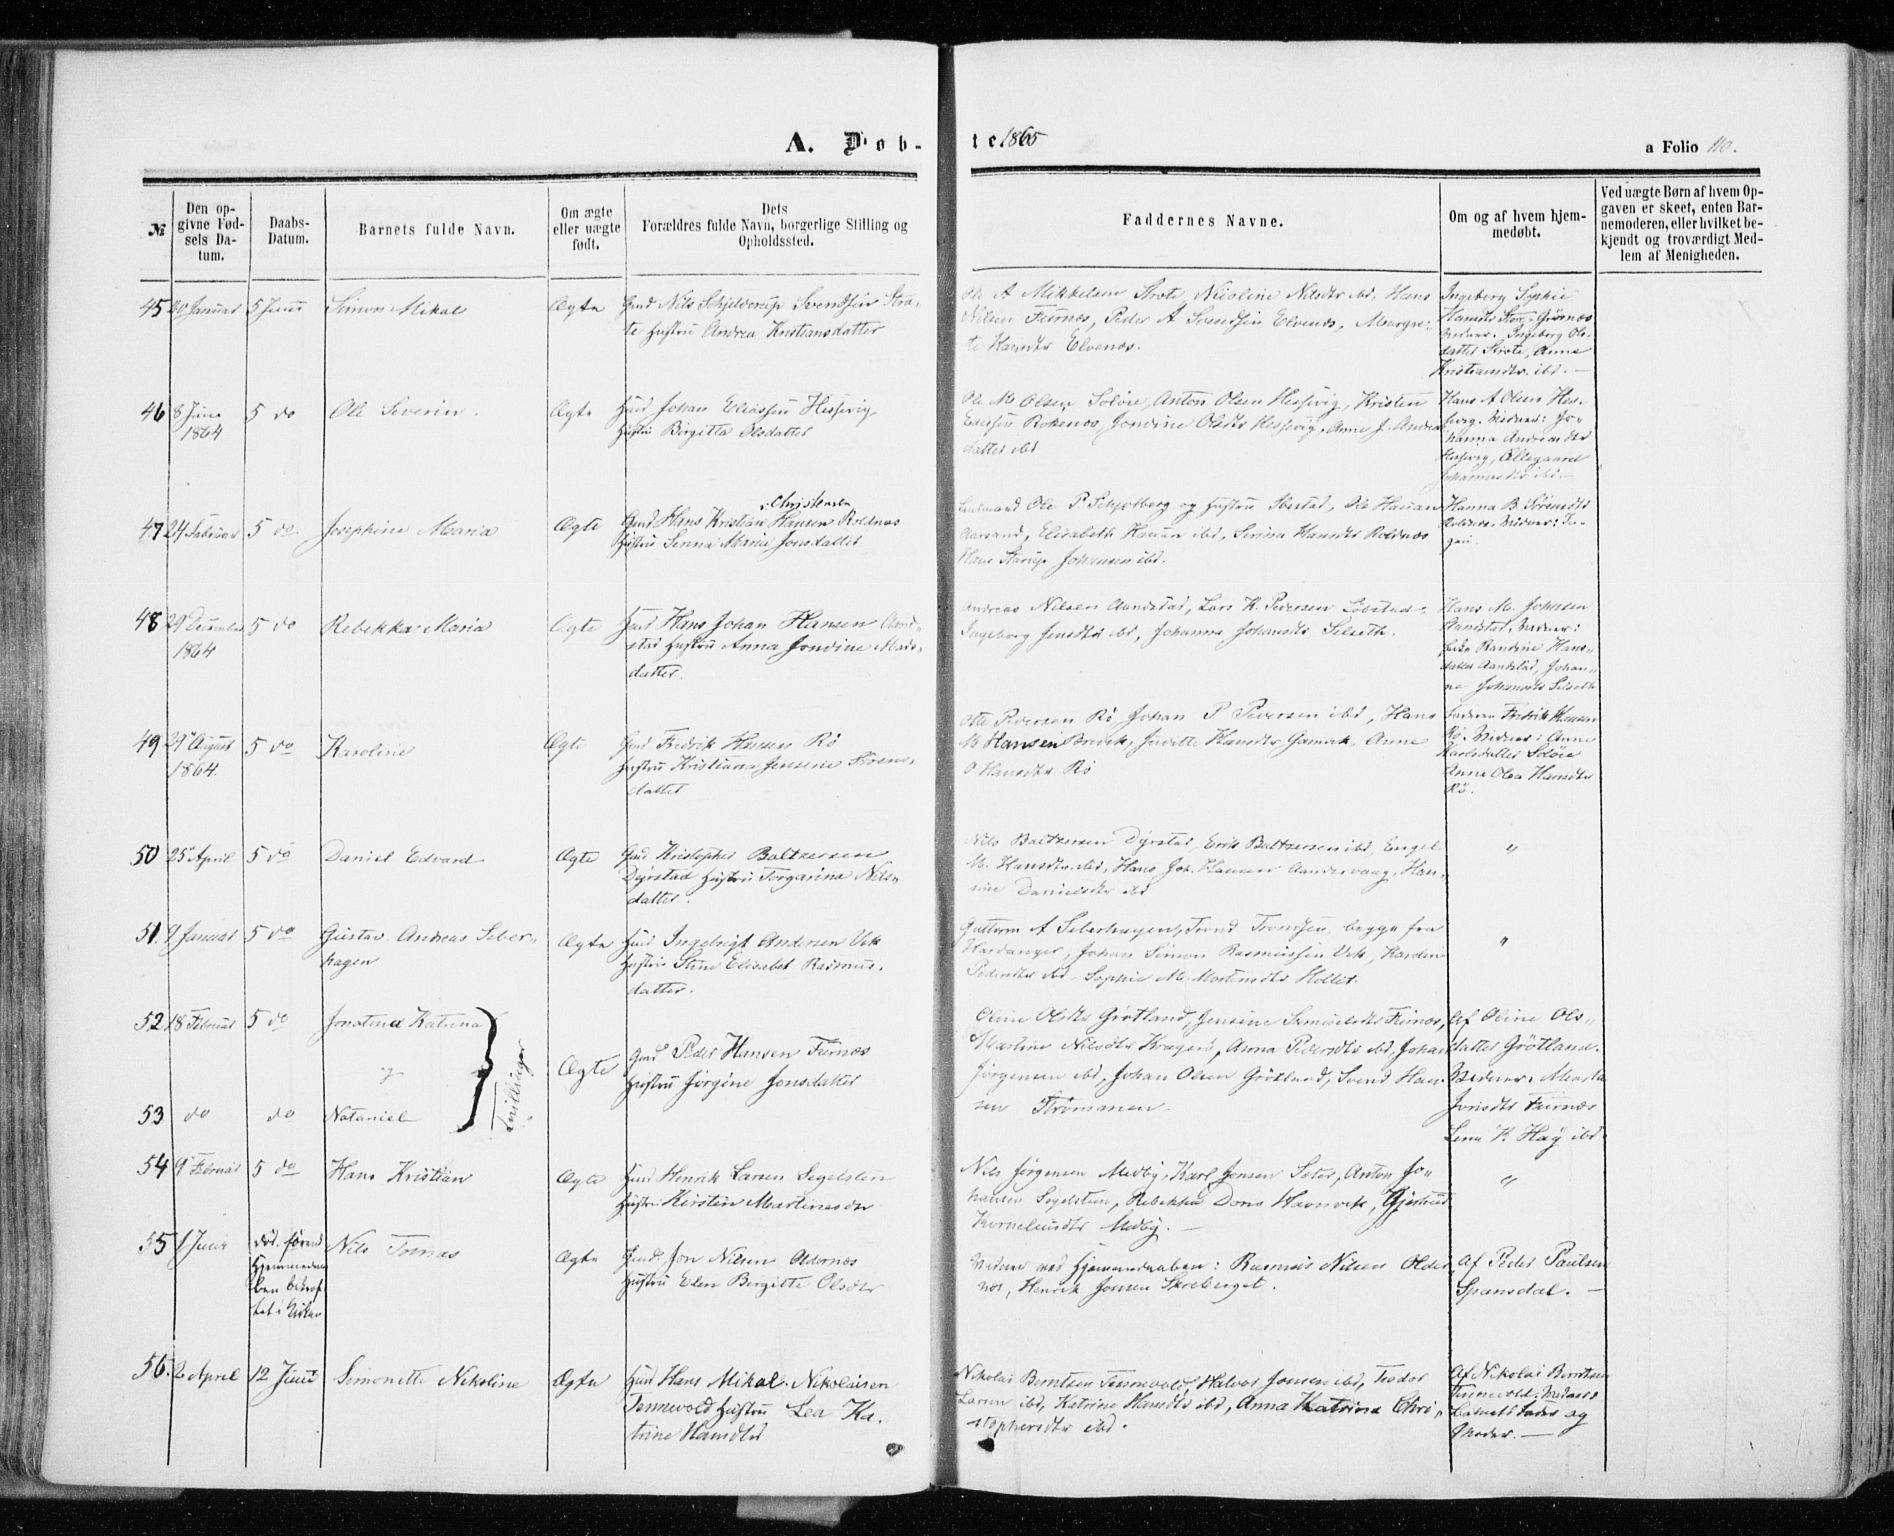 A. Døb-
te 1865
a Folio 110.
№
Den op-
givne Fød-
sels Da-
tum.
Daabs-
Datum.
Barnets fulde Navn.
Om ægte
eller uægte
født.
Dets
Forældres fulde Navn, borgerlige Stilling og
Opholdssted.
Faddernes Navne.
Om og af hvem hjem-
medøbt.
Ved uægte Børn af hvem Op-
gaven er skeet, enten Bar-
nemoderen, eller hvilket be-
kjendt og troværdigt Med-
lem af Menigheden.
45 20 Januar 5 Juni Simon Mikal Ægte Gmd Nils Schjelderup Svendsen Stro-
te Hustru Andrea Kristiansdatter
Ole A Mikkelsen Strote, Nicoline Nilsdtr ibd, Hans
Nilsen Furnes, Peder A Svendsen Elvenes, Margre-
te Hansdtr Elvenes.
Ingeborg Sophie
Hansdtr
Ingeborg Ols-
datter Strote, Anne
Kristiansdtr. ibd.
46 8 Juni
1864
5 do Ole Severin Ægte Huusmd Johan Eliassen Hessevig
Hustru Birgitta Olsdatter
Ole M Olsen Soløie, Anton Olsen Hessevig, Kristen
Rokenes, Jondine Olsdtr Hessevig, Anne J. Andreas
datter ibd
Hans A Olsen Hes-
sevig. Vidner: Jo-
hanna Andreasdtr
Hessevig, Ollegaard
Johannesdtr ibd.
47 24 Februar 5 do Josephine Maria Ægte Gmd Hans Kristian Hansen Roldnes
Christensen
Hustru Serina Maria Jonsdatter
Lensmand Ole P. Schjelberg og Hustru Ibestad, Ole Hanan
Aarsand, Elisabeth Hanan ibd, Serina Hansdtr Roldnes
Hans Starup Johansen ibd.
Hanna B. Sørensdtr
Roldnes. Vidner: In-
gen.
48 29 December
1864
5 do Rebekka Maria Ægte Huusmd Hans Johan Hansen Aand-
stad Hustru Anna Jondine Mads-
datter.
Andreas Nilsen Aandstad, Lars K. Pedersen Løbstad
Ingeborg Jensdtr ibd, Johanna Johansdtr Selseth.
Hans M. Johnsen
Aandstad, Vidner:
Randine Hans-
datter Aandstad, Johan-
ne Johansdtr Selseth
49 29 August
1864.
5 do Karoline Ægte Gmd Fredrik Hansen Rø
Hustru Kristiana Jensine
datter
Ole Pedersen Rø, Johan P Pedersen ibd, Hans
M Hansen Brevik, Judithe Hansdtr Gamvik, Anne
O Hansdtr Rø
Faderen Fredrik Hansen
Rø. Vidner: Anne
Karlsdatter Soløie
Anne Olea Hansdtr
Rø.
50 25 April 5 do Daniel Edvard Ægte Gmd Kristopher Baltzersen
Dyrstad Hustru Torgarina Nils-
datter.
Nils Baltzersen Dyrstad, Erik Baltzersen ibd, Engel
M. Hansdtr ibd, Hans Joh. Hansen Aandervaag, Han-
sine Danielsdtr ibd
"
51. 9 Januar 5 do Gustav Andreas Seber-
hagen
Ægte Huusmd Ingebrigt Andersen Vik
Hustru Stine Elisabet Rasmus-
datter.
Guttorm A Seberhagen, Trond Trondsen, begge fra
Hardanger, Johan Simon Rasmussen Vik, Karden
Pedersdtr ibd, Sophie M. Mortensdtr Hollet.
"
52 18 Februar 5 do Jonatine Katrina
Ægte Gmd Peder Hansen Furnes
Hustru Jørgine Jonsdatter
Tvillinger
53 do do Nataniel
Oline Olsdtr Grøtland, Jensine Samuelsdtr Furnes,
Martine Nilsdtr Kragerø, Anna Pedersdtr ibd, Johan
Jørgensen ibd, Johan Olsen Grøtland, Svend Han-
sen Strømmen
Af Oline Ols-
datter Grøtland.
Vidner: Marta
Jonsdtr Furnes
Lene K. Høy ibd.
54 9 Februar 5 do Hans Kristian Ægte Huusmd Henrik Larsen Segelsten
Hustru Kirsten Martinesdtr
Nils Jørgensen Medby, Karl Jonsen Seter, Anton Jo-
hansen Segelsten, Rebekka Dons Havnvik, Gjertrud
Korneliusdtr Medby.
"
55 1 Juni død førend
Hjemmedaa-
ben bekræf-
tet i Kirken
Nils Tomas Ægte Gmd Jon Nilsen Oldernes
Hustru Elen Birgitte Olsdtr
Vidner ved Hjemmedaaben: Rasmus Nilsen Older-
nes, Henrik Jonsen Skreberget.
Af Peder Paulsen
Spansdal.
56. 2 April 12 Juni Simonette Nikoline Ægte Huusmd Hans Mikal Nikolaisen
Tennevold Hustru Lea Ka-
trine Hansdtr
Nikolai Berntsen Tennevold, Halvor Jonsen ibd, Teodor
Larsen ibd, Katrine Hansdtr ibd, Anna Katrine Chri-
stophersdtr ibd.
Af Nikolai Berntsen
Tennevold. Vidner:
Barnets Fader og
Moder.